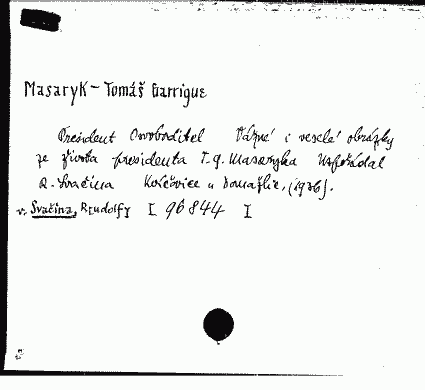 Masaryk - Tomáš Garrigue
President Osvoboditel Vážné i veselé obrázky
ze života presidenta T. G. Masaryka Uspořádal
R. Svačina u Domažlic, (1936).
v. Svačina, R[udolf] I 96844 I